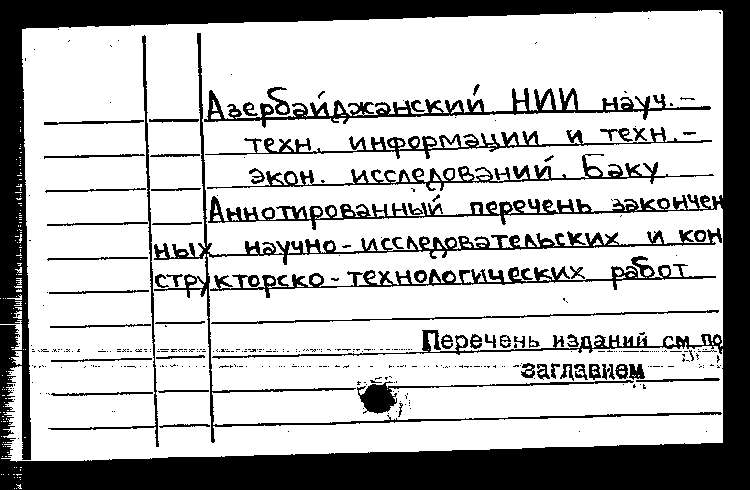 Азербайджанский НИИ науч.-
техн. информации и техн.-
экон. исследований. Баку
Аннотированный перечень закончен
ных научно-исследовательских и кон
структорско-технологических работ
Перечень изданий см по
заглавием